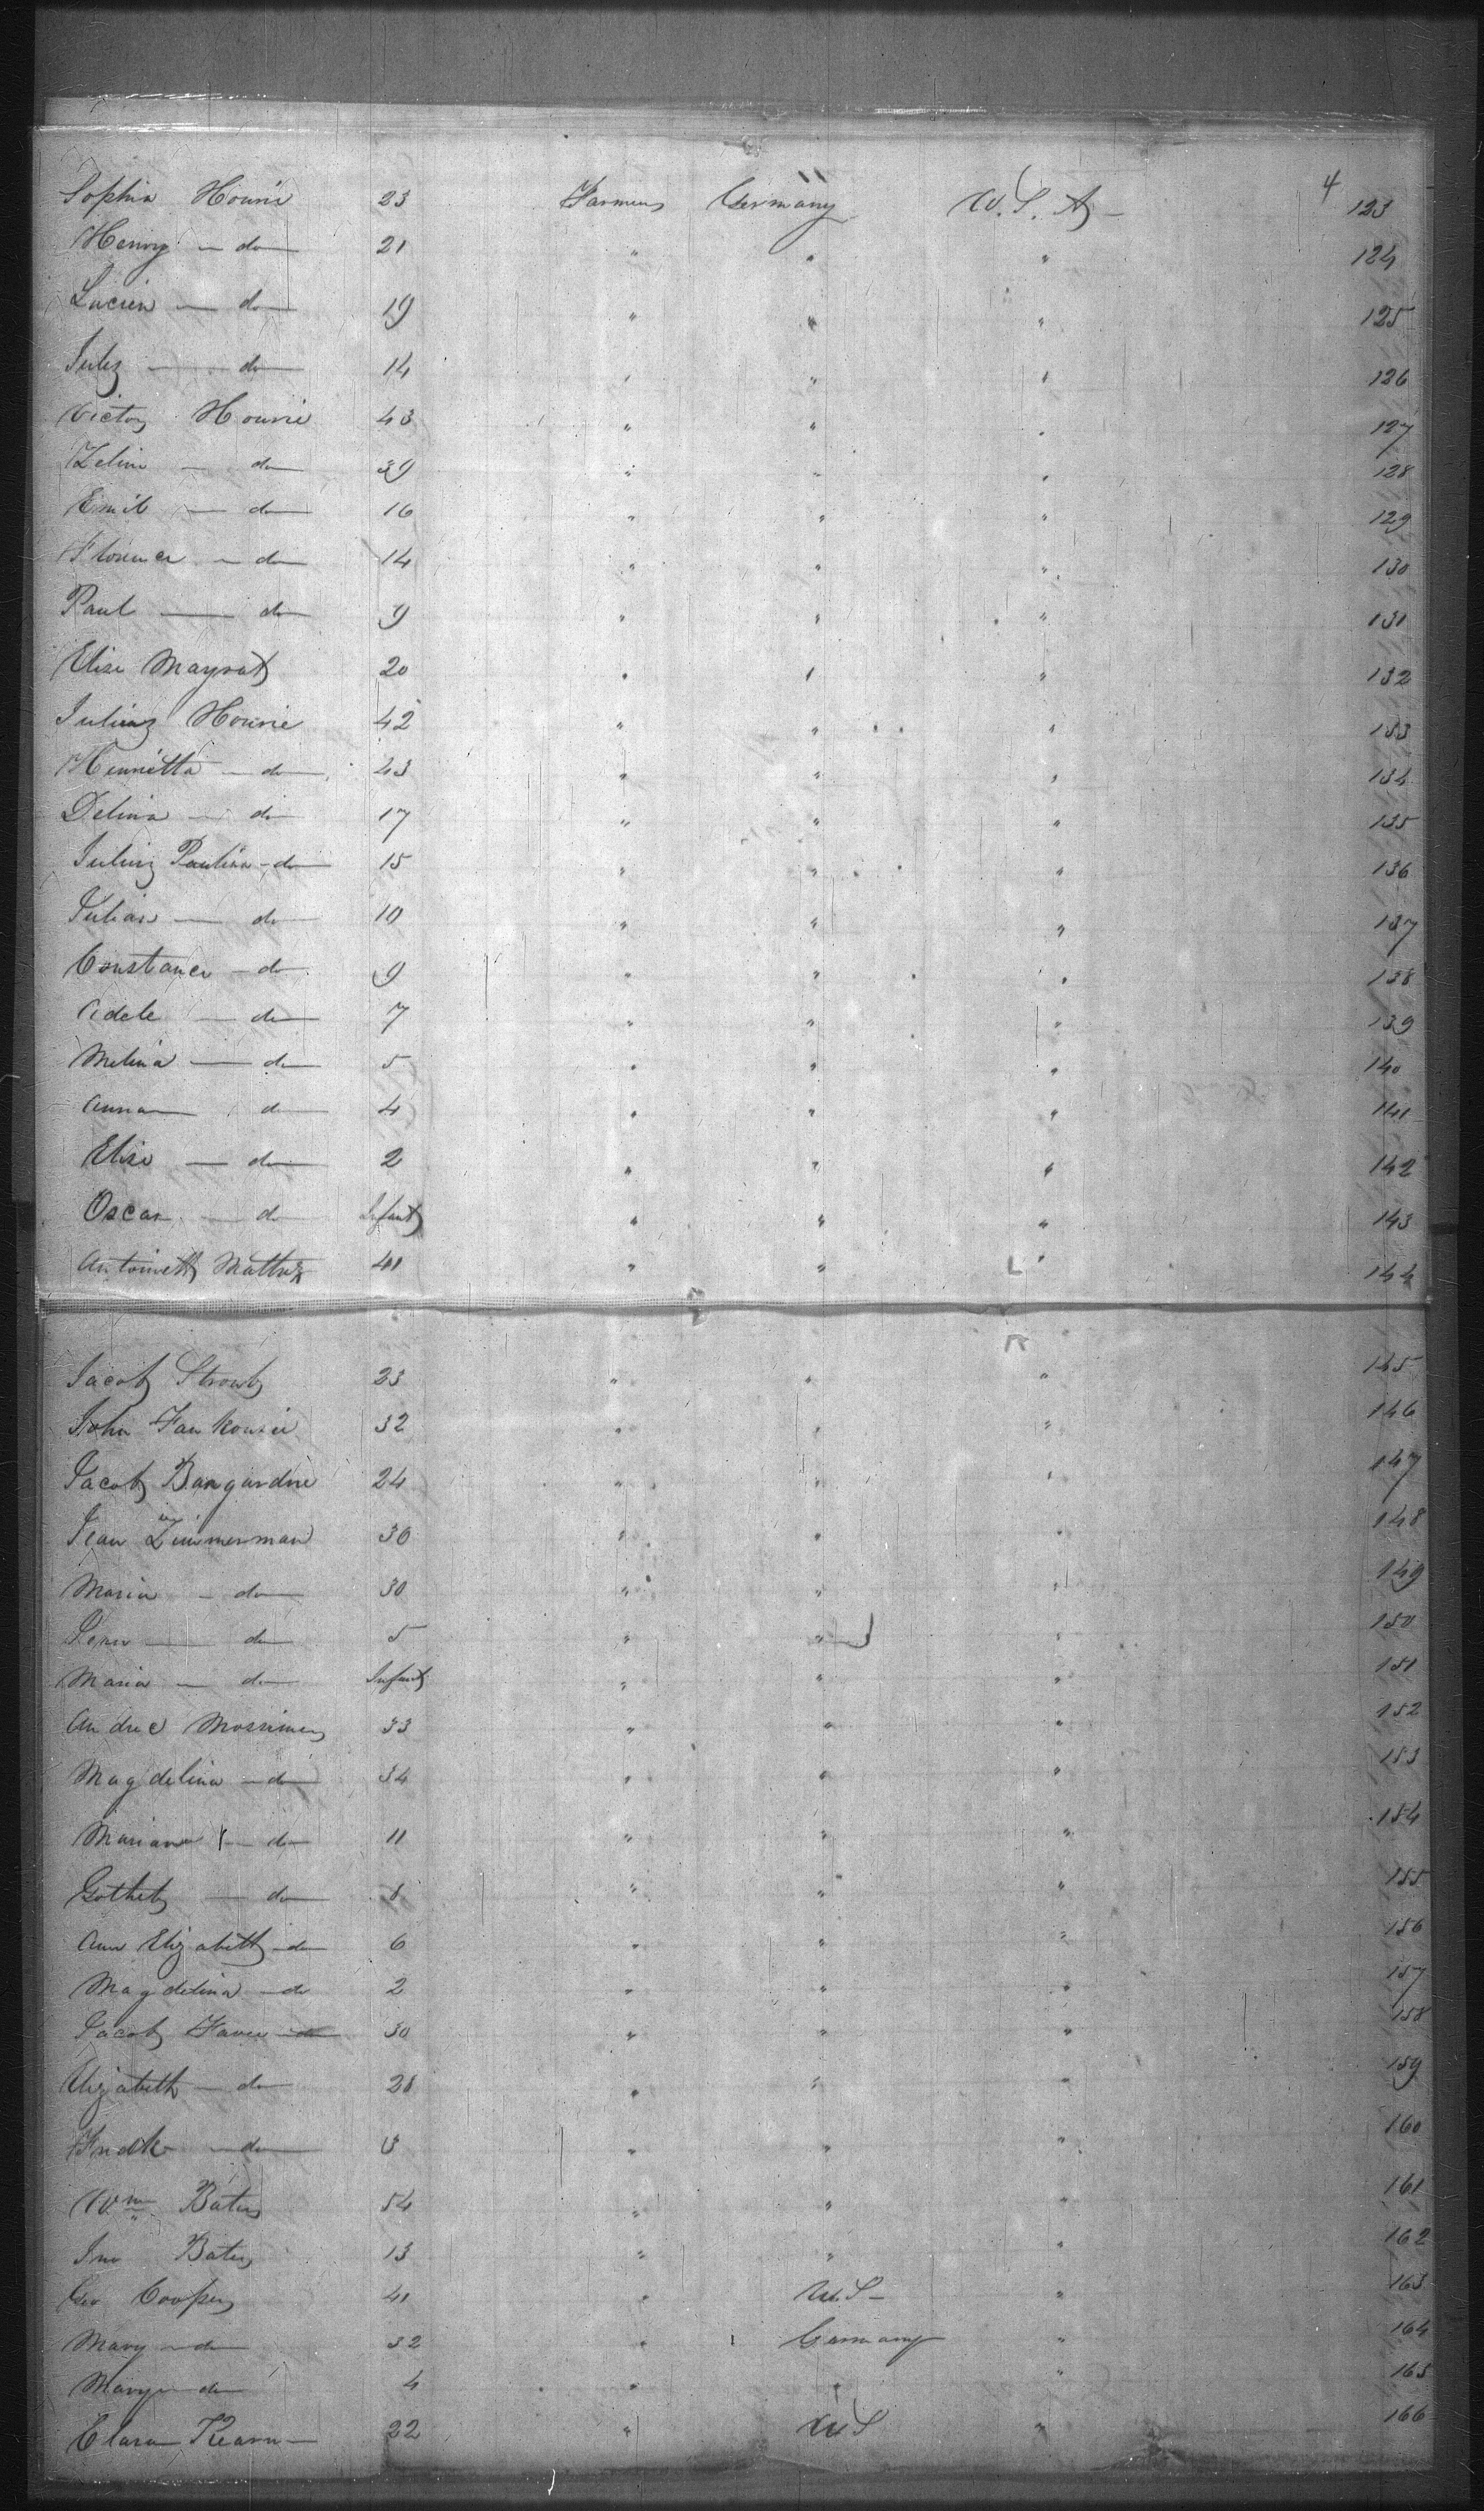 4
Sophia Hourié 23 Farmers Germany U. S. A 123
Henry — do 21 " " " 124
Lucien — do 19 " " " 125
Jules — do 14 " " " 126
Victor Hourié 43 " " " 127
Zelina — do 39 " " " 128
Emil — do 16 " " " 129
Florence — do 14 " " " 130
Paul — do 9 " " " 131
Elise Mayrat 20 " " " 132
Julius Hourié 42 " " " 133
Henrietta — do 43 " " " 134
Delina — do 17 " " " 135
Julius Paulina — do 15 " " " 136
Julian — do 10 " " " 137
Constance — do 9 " " " 138
Adele — do 7 " " " 139
Melina — do 5 " " " 140
Anna — do 4 " " " 141
Elise — do 2 " " " 142
Oscar — do Infant " " " 143
Antoinette 41 " " " 144
L
R
Jacob 23 " " " 145
John 32 " " " 146
Jacob Bangardne 24 " " " 147
Jean Zimmerman 30 " " " 148
Maria — do 30 " " " 149
— do 5 " " " 150
Maria — do Infant " " " 151
Andre 33 " " " 152
Magdelina — do 34 " " " 153
Mariana — do 11 " " " 154
Gotlieb — do 8 " " " 155
Ann Elizabeth — do 6 " " " 156
Magdelina — do 2 " " " 157
Jacob 30 " " " 158
Elizabeth — do 28 " " " 159
Fredk — do 3 " " " 160
Wm Bates 54 " " " 161
Jno Bates 13 " " " 162
Geo Cooper 41 " U.S — " 163
Mary — do 32 " Germany " 164
Mary — do 4 " " " 165
Clara Kearn — 22 " U S " 166